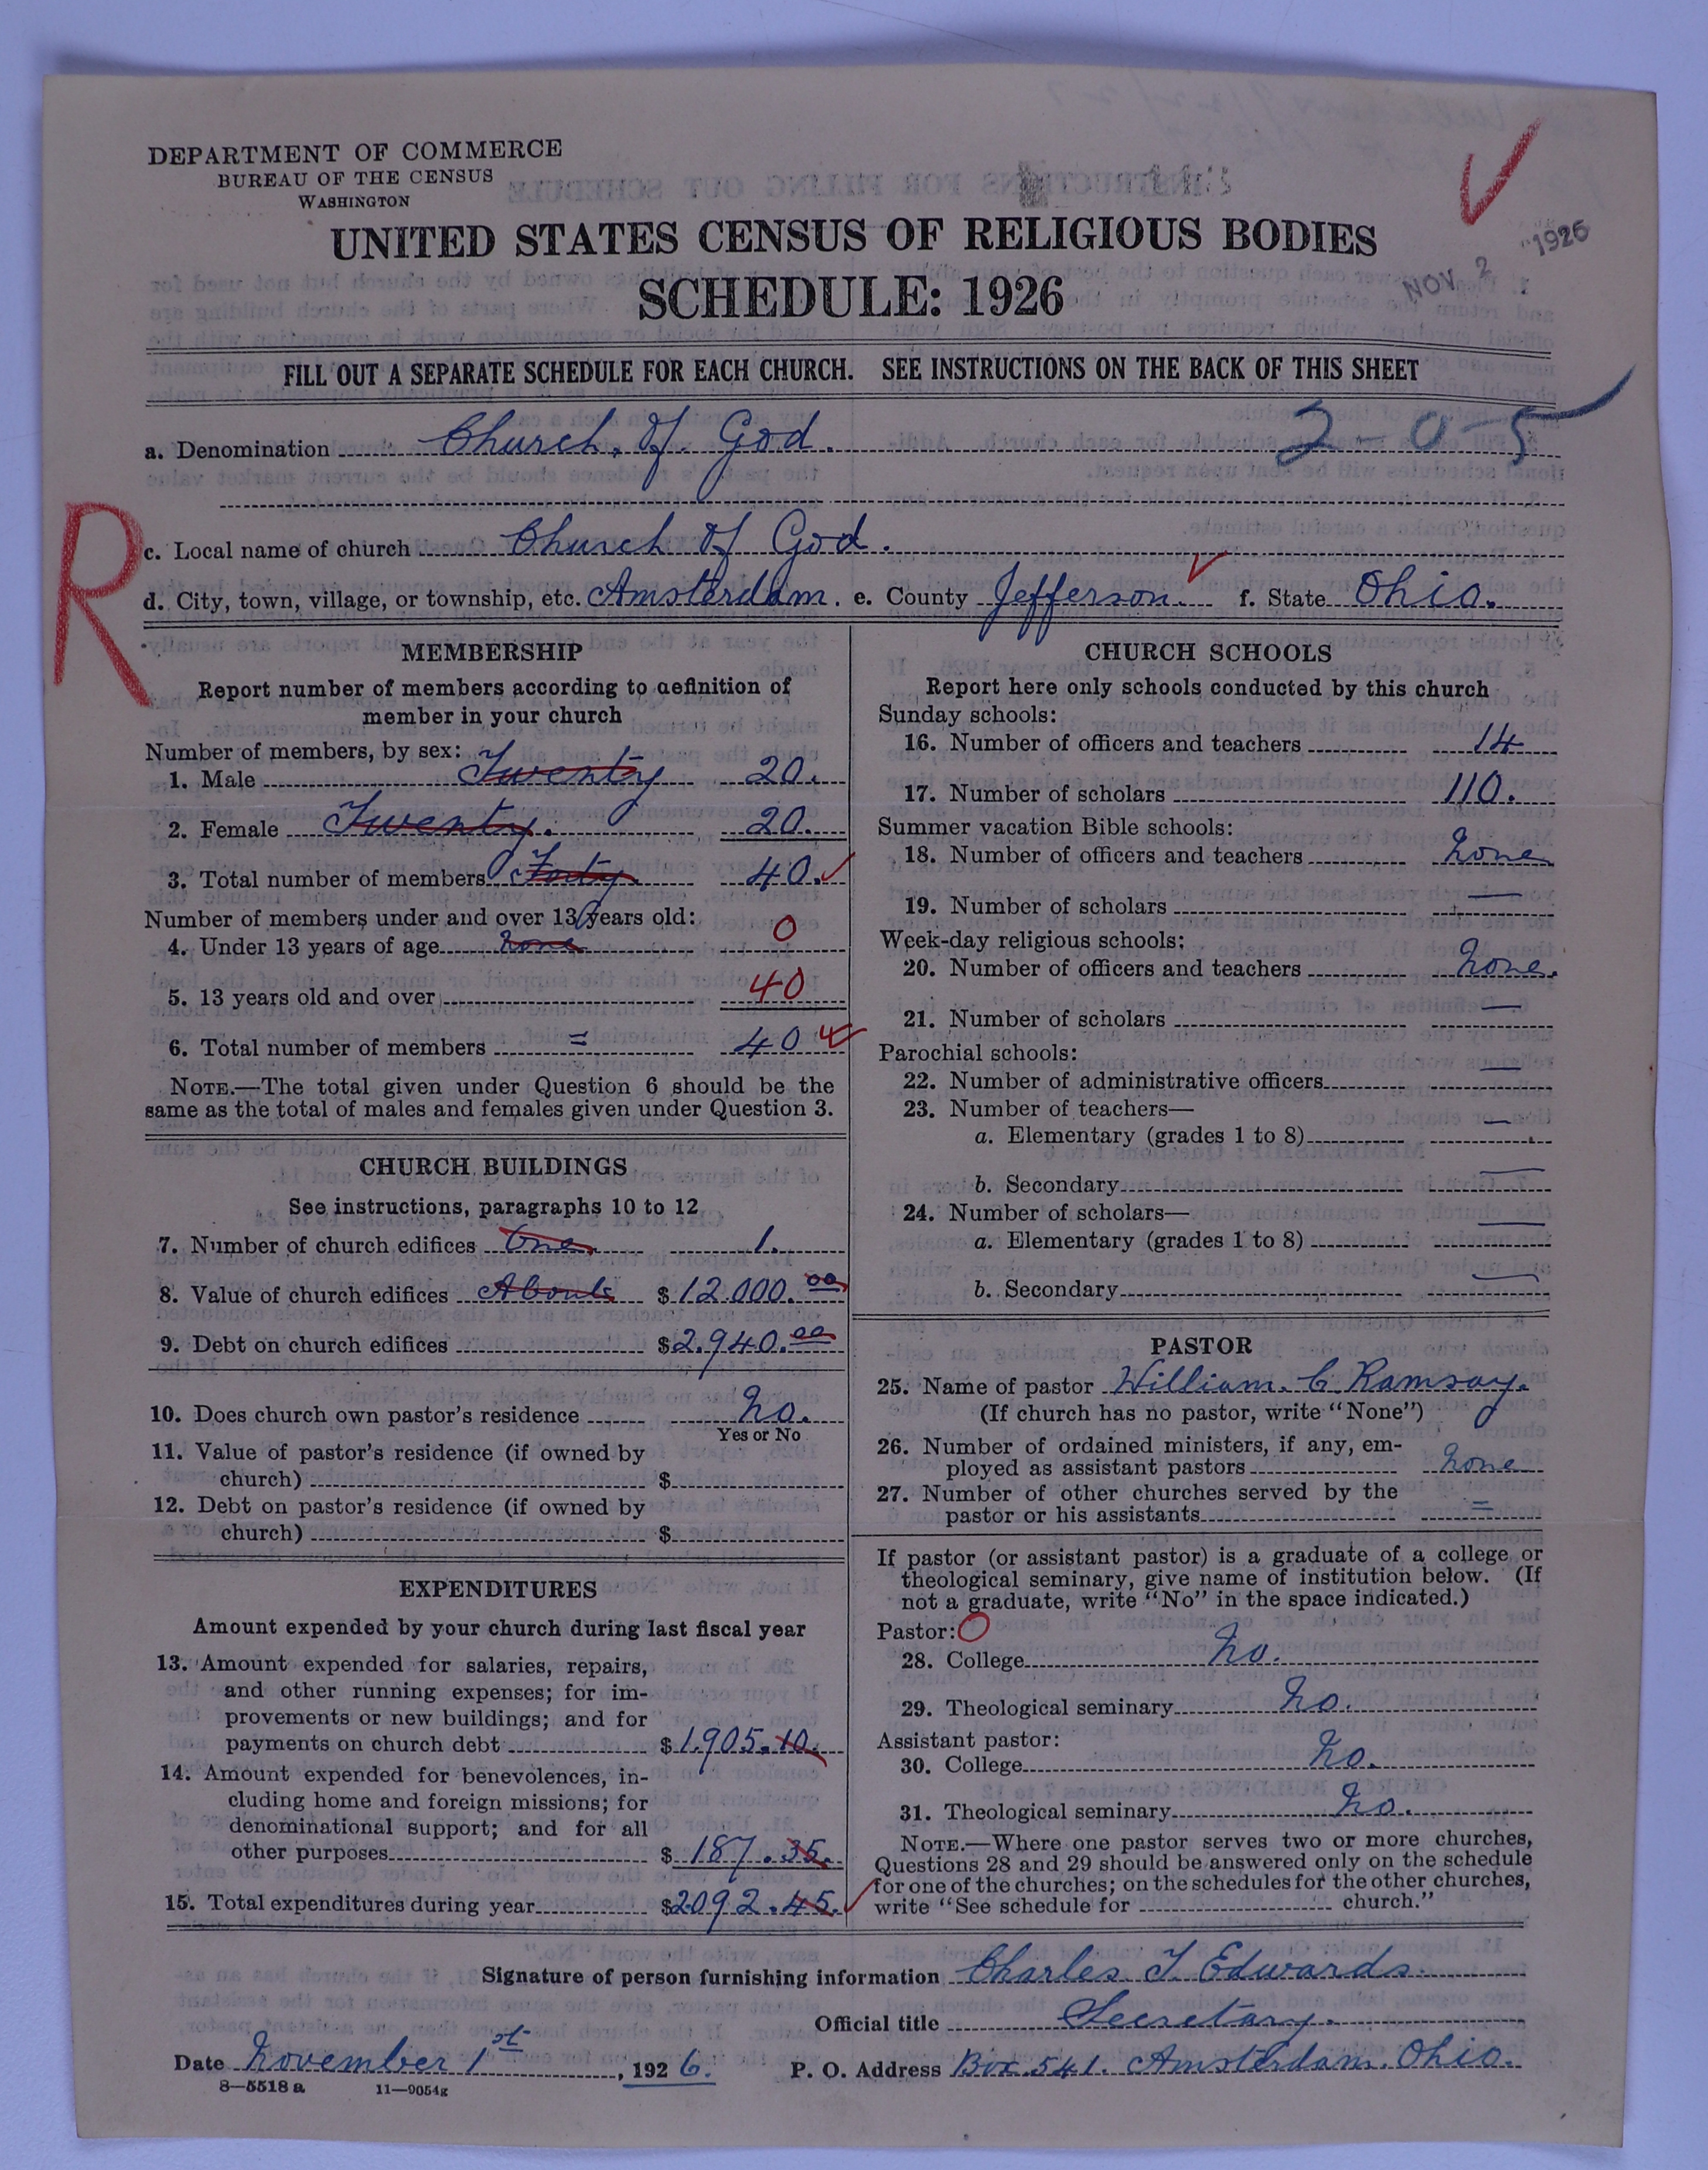 DEPARTMENT OF COMMERCE
BUREAU OF THE CENSUS
WASHINGTON
UNITED STATES CENSUS OF RELIGIOUS BODIES
SCHEDULE: 1926
NOV 2 1926
FILL OUT A SEPARATE SCHEDULE FOR EACH CHURCH. SEE INSTRUCTIONS ON THE BACK OF THIS SHEET
a. Denomination Church. of. God. 2-0-5
R
c. Local name of church Church of God.
d. City, town, village, or township, etc. Amsterdam. e. County Jefferson. f. State Ohio.
MEMBERSHIP
Report number of members according to definition of
member in your church
Number of members, by sex:
1. Male Twenty 20.
2. Female Twenty. 20.
3. Total number of members Forty 40.
Number of members under and over 13 years old:
4. Under 13 years of age None 0
5. 13 years old and over 40
6. Total number of members = 40
NOTE.—The total given under Question 6 should be the
same as the total of males and females given under Question 3.
CHURCH BUILDINGS
See instructions, paragraphs 10 to 12
7. Number of church edifices One. 1.
8. Value of church edifices About $12.000.00
9. Debt on church edifices $2.940.00
10. Does church own pastor's residence No.
Yes or No
11. Value of pastor's residence (if owned by
church) $
12. Debt on pastor's residence (if owned by
church) $
EXPENDITURES
Amount expended by your church during last fiscal year
13. Amount expended for salaries, repairs,
and other running expenses; for im-
provements or new buildings; and for
payments on church debt $1.905.10.
14. Amount expended for benevolences, in-
cluding home and foreign missions; for
denominational support; and for all
other purposes $187.35.
15. Total expenditures during year $2092.45.
CHURCH SCHOOLS
Report here only schools conducted by this church
Sunday schools:
16. Number of officers and teachers 14
17. Number of scholars 110.
Summer vacation Bible schools:
18. Number of officers and teachers None
19. Number of scholars —
Week-day religious schools:
20. Number of officers and teachers None.
21. Number of scholars —
Parochial schools:
22. Number of administrative officers —
23. Number of teachers—
a. Elementary (grades 1 to 8) —
b. Secondary —
24. Number of scholars—
a. Elementary (grades 1 to 8) —
b. Secondary —
PASTOR
25. Name of pastor William. C. Ramsay.
(If church has no pastor, write "None")
26. Number of ordained ministers, if any, em-
ployed as assistant pastors None
27. Number of other churches served by the
pastor or his assistants =
If pastor (or assistant pastor) is a graduate of a college or
theological seminary, give name of institution below. (If
not a graduate, write "No" in the space indicated.)
Pastor: O
28. College No.
29. Theological seminary No.
Assistant pastor:
30. College No.
31. Theological seminary No.
NOTE.—Where one pastor serves two or more churches,
Questions 28 and 29 should be answered only on the schedule
for one of the churches; on the schedules for the other churches,
write "See schedule for church."
Signature of person furnishing information Charles. T. Edwards.
Official title Secretary.
Date November 1st, 1926. P. O. Address Box. 541. Amsterdam. Ohio.
8—5518 a 11—9054g